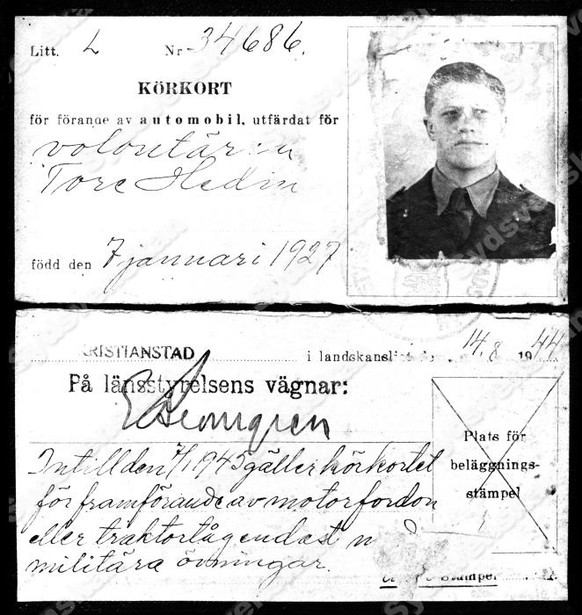 Litt. L Nr 34686.
KÖRKORT
för förande av automobil, utfärdat för
volontären
Tore Hedin
född den 7 januari 1927
KRISTIANSTAD i landskansliet den 14/8 1944
På länsstyrelsens vägnar:
Intill den 7/1 1945 gäller körkortet
för framförande av motorfordon
eller traktortåg endast
militära övningar.
Plats för
beläggnings-
stämpel